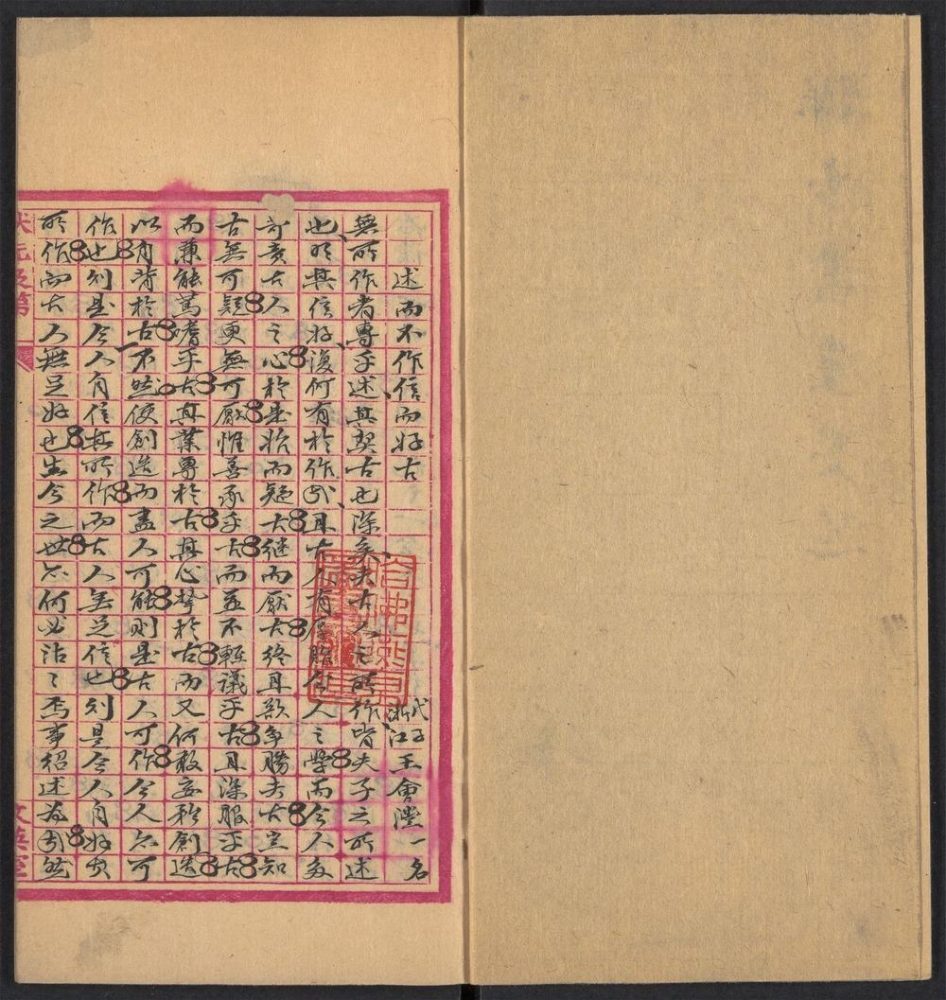 述而不作信而好古
戊子浙江王會灃一名
無所作者專乎述其契古也深矣夫古人之所作皆夫子之所述
也明其信好復何有於作哉且古人有 今人之學而今人多
奇達古人之心於是始而疑古繼而厭古終且欲爭勝夫古豈知
古無可疑更無可厭惟善承乎古而並不輕議乎古且深服乎古
而兼能篤嗜乎古其業專於古其心摯於古而又何敢妄矜創造
以自背於古不然使創造而盡人可能則是古人可作今人亦可
作也則是今人自信其所作而古人無足信也則是今人自好其
所作而古人無足好也生今之世亦何必沾ミ焉事紹述為哉然
狀元及第
文英室